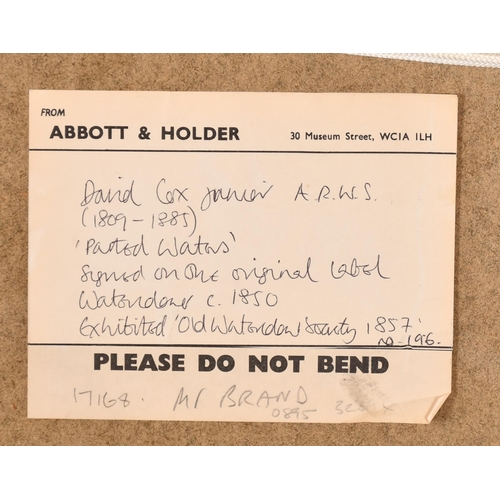 FROM
ABBOTT & HOLDER 30 Museum Street, WC1A 1LH
David Cox Junior A.R.W.S.
(1809-1885)
'Parted Waters'
Signed on the original label
Watercolour c. 1850
Exhibited 'Old Watercolour Society 1857'
no. 196.
PLEASE DO NOT BEND
17168. Mr BRAND
0895